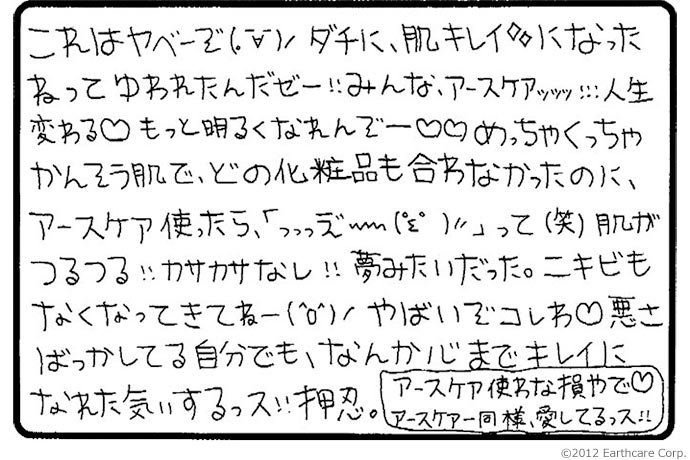 これはヤベーぞ(.¨∀¨)ノ ダチに、肌キレイ◇◇になった
ねって ゆわれたんだゼー!!みんな、アースケアッッッッ!!!人生
変わる♡もっと明るくなれんぞー♡♡めっちゃくっちゃ
かんそう肌で、どの化粧品も合わなかったのに、
アースケア使ったら、「っっっえ゛〰〰(°ε° )〃」って(笑)肌が
つるつる!!カサカサなし!!夢みたいだった。ニキビも
なくなってきてねー(^o^)ノやばいぞコレわ♡悪さ
ばっかしてる自分でも、なんか心までキレイに
なれた気ぃするっス!!押忍。
アースケア使わな損やで♡
アースケア一同様、愛してるっス!!
©2012 Earthcare Corp.